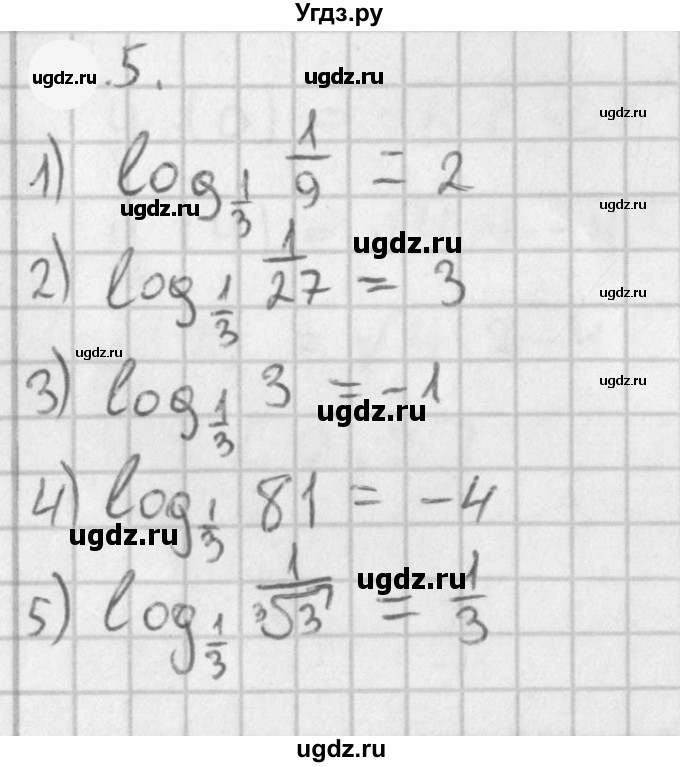 Угдз.ру
ugdz.ru .5. ugdz.ru ugdz.ru
1) log_{1/3} 1/9 = 2
ugdz.ru ugdz.ru
ugdz.ru
2) log_{1/3} 1/27 = 3
ugdz.ru
ugdz.ru ugdz.ru
3) log_{1/3} 3 = -1
ugdz.ru
4) log_{1/3} 81 = -4
ugdz.ru
ugdz.ru
5) log_{1/3} 1/∛3 = 1/3
ugdz.ru